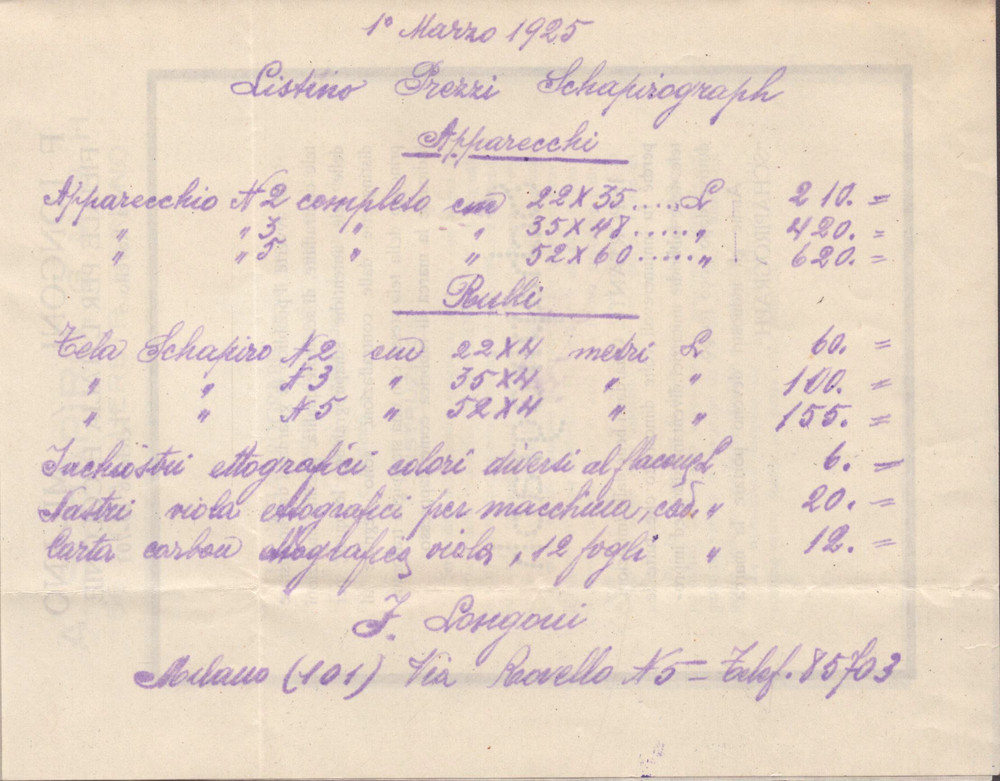 1° Marzo 1925
Listino Prezzi Schapirograph
Apparecchi
Apparecchio N2 completo cm 22X35.....L 210. =
" " 3 " " 35X48....." 420. =
" " 5 " " 52X60....." 620. =
Rulli
Tela Schapiro N2 cm 22X4 metri L 60. =
" " N3 " 35X4 " " 100. =
" " N5 " 52X4 " " 155. =
Inchiostri ettografici colori diversi al flacone L 6. =
Nastri viola ettografici per macchina, cad " 20. =
Carta carbon ettografica viola, 12 fogli " 12. =
F. Longoni
Milano (101) Via Rovello N5 = Telef. 85703